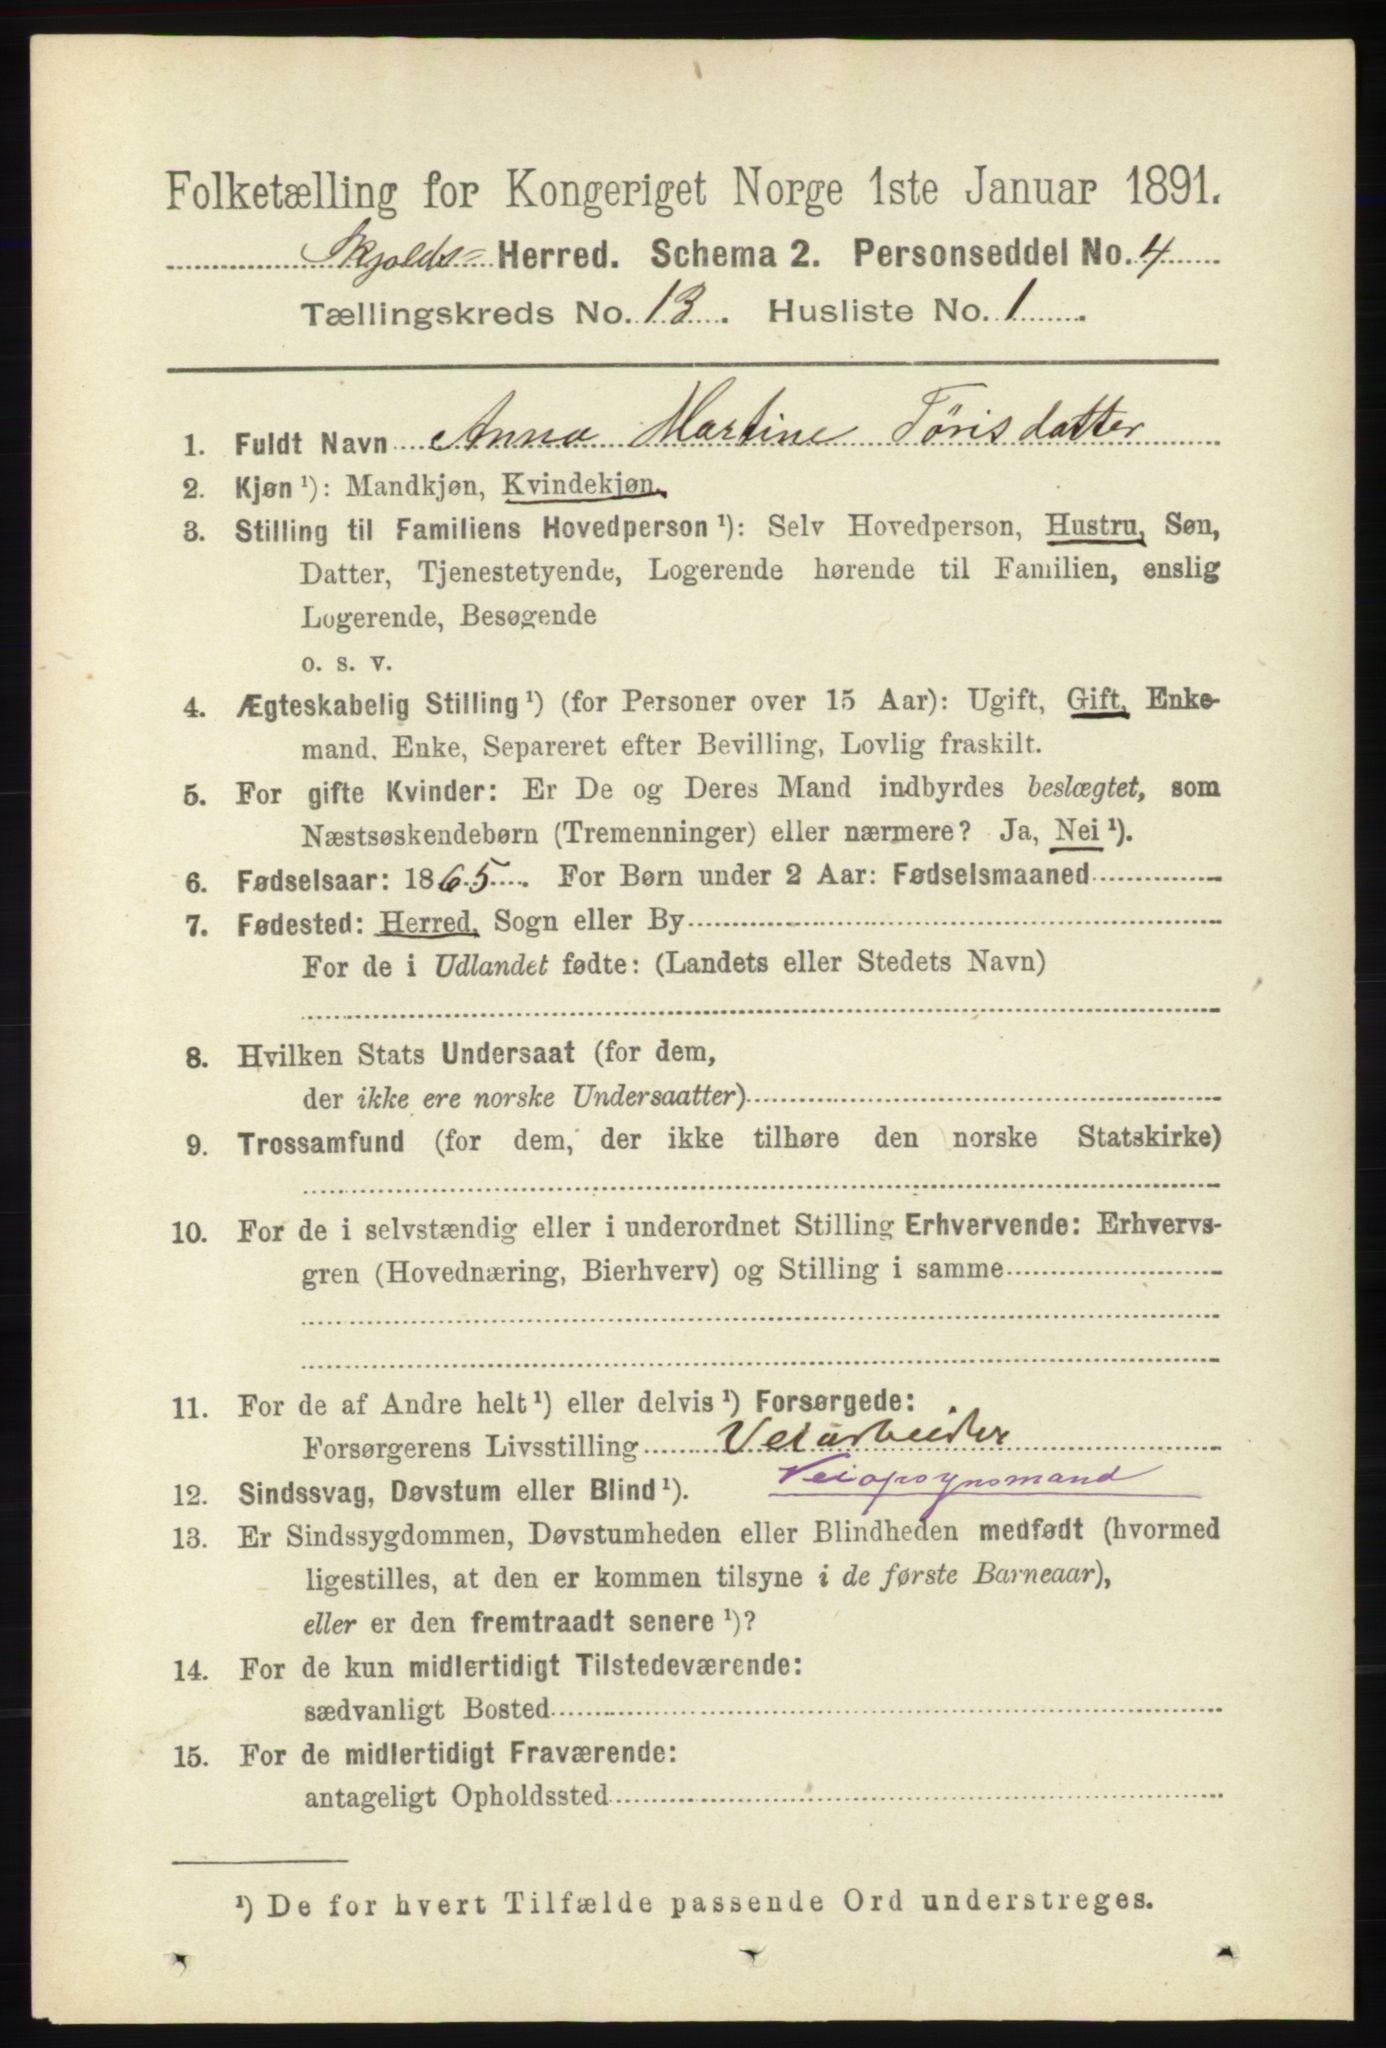 Folketælling for Kongeriget Norge 1ste Januar 1891.
Skjolds- Herred. Schema 2. Personseddel No. 4
Tællingskreds No. 13. Husliste No. 1
1. Fuldt Navn Anna Martine Tørisdatter
2. Kjøn ¹): Mandkjøn, Kvindekjøn.
3. Stilling til Familiens Hovedperson ¹): Selv Hovedperson, Hustru, Søn,
Datter, Tjenestetyende, Logerende hørende til Familien, enslig
Logerende, Besøgende
o. s. v.
4. Ægteskabelig Stilling ¹) (for Personer over 15 Aar): Ugift, Gift, Enke-
mand, Enke, Separeret efter Bevilling, Lovlig fraskilt.
5. For gifte Kvinder: Er De og Deres Mand indbyrdes beslægtet, som
Næstsøskendebørn (Tremenninger) eller nærmere? Ja, Nei ¹).
6. Fødselsaar: 1865. For Børn under 2 Aar: Fødselsmaaned
7. Fødested: Herred, Sogn eller By
For de i Udlandet fødte: (Landets eller Stedets Navn)
8. Hvilken Stats Undersaat (for dem,
der ikke ere norske Undersaatter)
9. Trossamfund (for dem, der ikke tilhøre den norske Statskirke)
10. For de i selvstændig eller i underordnet Stilling Erhvervende: Erhvervs-
gren (Hovednæring, Bierhverv) og Stilling i samme
11. For de af Andre helt ¹) eller delvis ¹) Forsørgede:
Forsørgerens Livsstilling Veiarbeider
Veiopsynsmand
12. Sindssvag, Døvstum eller Blind ¹).
13. Er Sindssygdommen, Døvstumheden eller Blindheden medfødt (hvormed
ligestilles, at den er kommen tilsyne i de første Barneaar),
eller er den fremtraadt senere ¹)?
14. For de kun midlertidigt Tilstedeværende:
sædvanligt Bosted
15. For de midlertidigt Fraværende:
antageligt Opholdssted
¹) De for hvert Tilfælde passende Ord understreges.